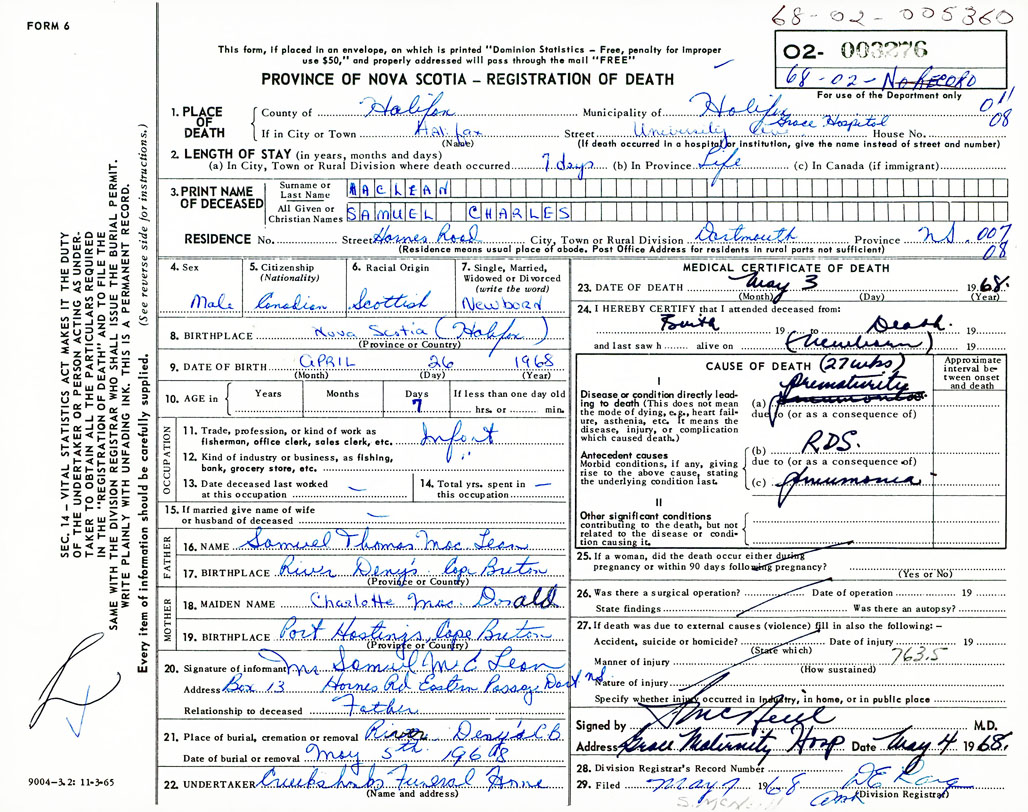 FORM 6
68-02-005360
This form, if placed in an envelope, on which is printed "Dominion Statistics – Free, penalty for improper
use $50," and properly addressed will pass through the mail "FREE"
02- 003276
68-02- NO RECORD
For use of the Department only
PROVINCE OF NOVA SCOTIA – REGISTRATION OF DEATH
011
08
1. PLACE OF DEATH
County of Halifax Municipality of Halifax
Grace Hospital
If in City or Town Halifax Street University House No.
(Name) (If death occurred in a hospital or institution, give the name instead of street and number)
2. LENGTH OF STAY (in years, months and days)
(a) In City, Town or Rural Division where death occurred 7 days (b) In Province Life (c) In Canada (if immigrant)
3. PRINT NAME OF DECEASED
Surname or Last Name MACLEAN
All Given or Christian Names SAMUEL CHARLES
RESIDENCE No. Street Hornes Road City, Town or Rural Division Dartmouth Province N.S. 007
08
(Residence means usual place of abode. Post Office Address for residents in rural parts not sufficient)
4. Sex
Male
5. Citizenship
(Nationality)
Canadian
6. Racial Origin
Scottish
7. Single, Married,
Widowed or Divorced
(write the word)
Newborn
8. BIRTHPLACE Nova Scotia (Halifax)
(Province or Country)
9. DATE OF BIRTH APRIL 26 1968
(Month) (Day) (Year)
10. AGE in Years Months Days If less than one day old
7 hrs. or min.
OCCUPATION
11. Trade, profession, or kind of work as
fisherman, office clerk, sales clerk, etc. Infant
12. Kind of industry or business, as fishing,
bank, grocery store, etc. "
13. Date deceased last worked
at this occupation —
14. Total yrs. spent in
this occupation —
15. If married give name of wife
or husband of deceased —
FATHER
16. NAME Samuel Thomas Mac Lean
17. BIRTHPLACE River Deny's Cape Breton
(Province or Country)
MOTHER
18. MAIDEN NAME Charlotte Mac Donald
19. BIRTHPLACE Port Hastings, Cape Breton
(Province or Country)
20. Signature of informant Mr Samuel Mc Lean
Address Box 13 Hornes Rd Eastern Passage Dart N.S.
Relationship to deceased Father
21. Place of burial, cremation or removal River Deny's C.B.
Date of burial or removal May 5th 1968
22. UNDERTAKER Cruikshanks Funeral Home
(Name and address)
MEDICAL CERTIFICATE OF DEATH
23. DATE OF DEATH May 3 1968.
(Month) (Day) (Year)
24. I HEREBY CERTIFY that I attended deceased from:
Birth 19 to Death. 19
and last saw h alive on (Newborn) 19
CAUSE OF DEATH (27 wks)
Approximate
interval be-
tween onset
and death
I
Disease or condition directly lead-
ing to death (This does not mean
the mode of dying, e.g., heart fail-
ure, asthenia, etc. It means the
disease, injury, or complication
which caused death.)
(a) Prematurity
due to (or as a consequence of)
Antecedent causes
Morbid conditions, if any, giving
rise to the above cause, stating
the underlying condition last.
(b) RDS.
due to (or as a consequence of)
(c) pneumonia
II
Other significant conditions
contributing to the death, but not
related to the disease or condi-
tion causing it.
25. If a woman, did the death occur either during
pregnancy or within 90 days following pregnancy?
(Yes or No)
26. Was there a surgical operation? Date of operation 19
State findings Was there an autopsy?
27. If death was due to external causes (violence) fill in also the following: –
Accident, suicide or homicide? Date of injury 19
(State which)
763.5
Manner of injury
(How sustained)
Nature of injury
Specify whether injury occurred in industry, in home, or in public place
Signed by M.D.
Address Grace Maternity Hosp Date May 4 1968.
28. Division Registrar's Record Number
29. Filed May 7 1968
(Division Registrar)
SEC. 14 – VITAL STATISTICS ACT MAKES IT THE DUTY
OF THE UNDERTAKER OR PERSON ACTING AS UNDER-
TAKER TO OBTAIN ALL THE PARTICULARS REQUIRED
IN THE "REGISTRATION OF DEATH" AND TO FILE THE
SAME WITH THE DIVISION REGISTRAR WHO SHALL ISSUE THE BURIAL PERMIT.
WRITE PLAINLY WITH UNFADING INK. THIS IS A PERMANENT RECORD.
Every item of information should be carefully supplied. (See reverse side for instructions.)
9004–3.2: 11-3-65